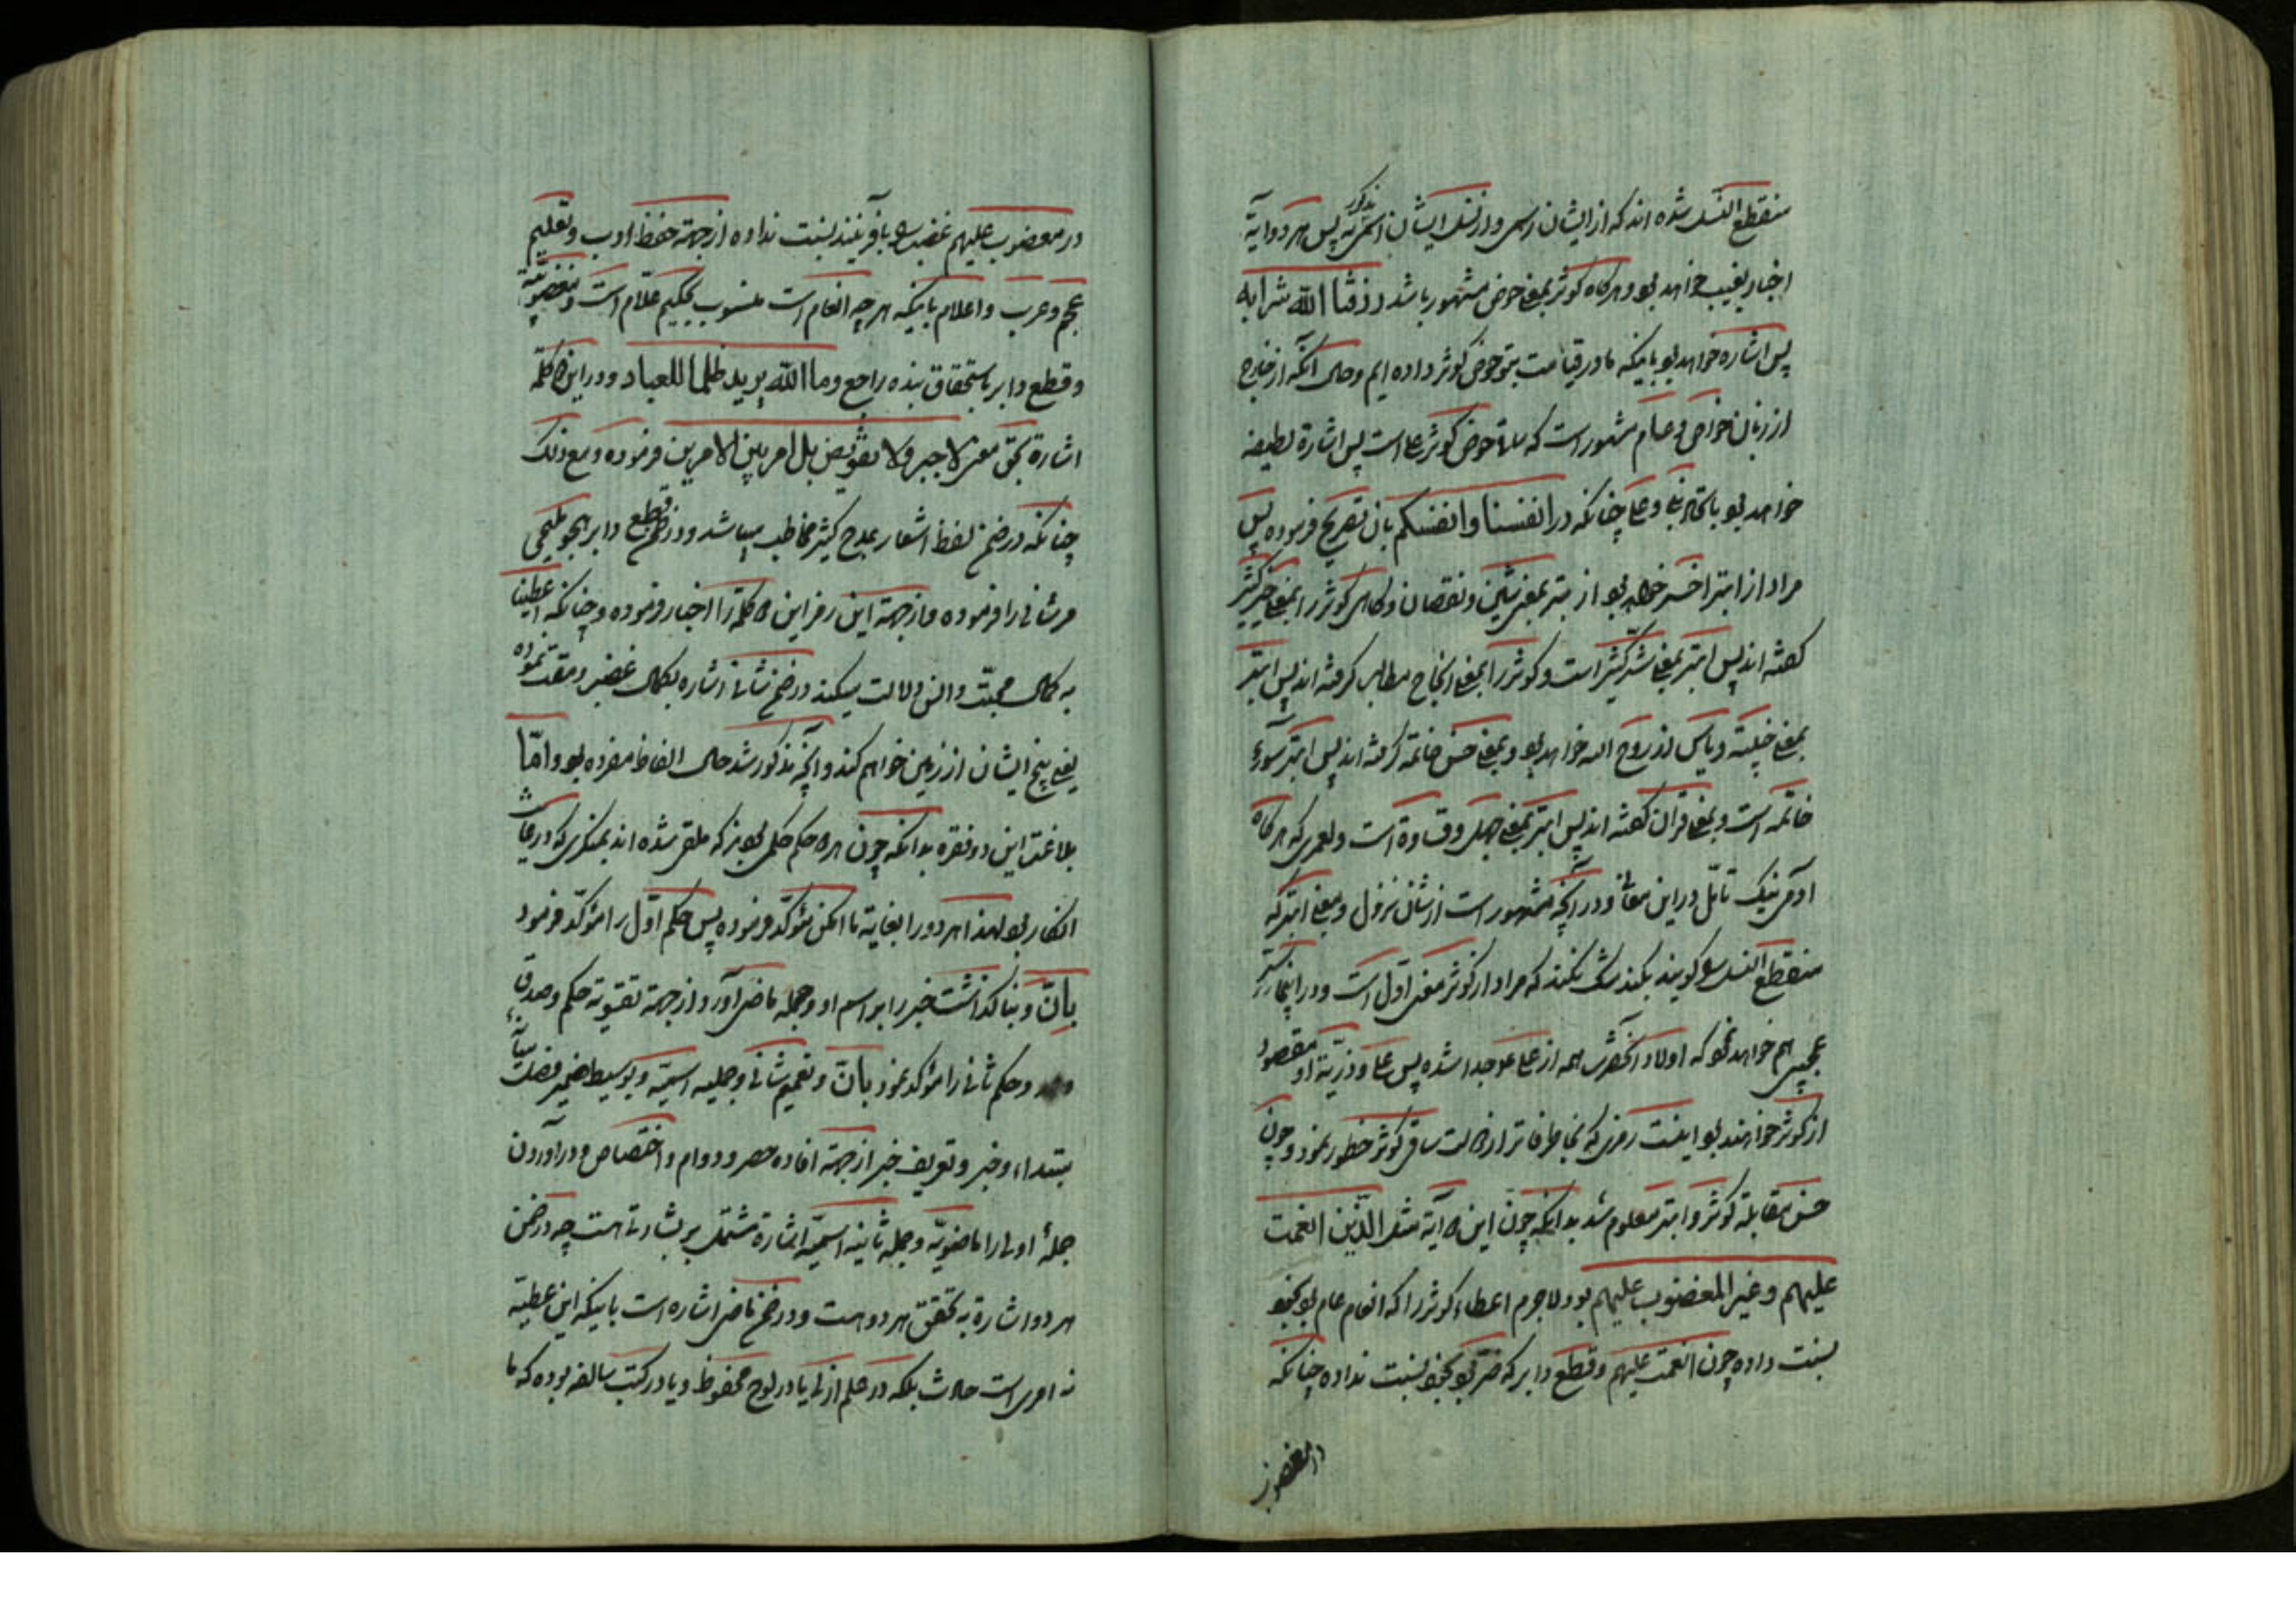 منقطع النسل شده اند که از ایشان اسمی و از نسل ایشان اثری نه پس هر دو آیة
مذکور
اخبار بغیب خواهد بود و هرکاه کوثر بمعنی حوض مشهور باشد رزقنا الله شرابه
پس اشاره خواهد بود باینکه ما در قیامت بتو حوض کوثر داده ایم و حال آنکه از خارج
از زبان خواص و عام مشهور است که ساقی حوض کوثر علی است پس اشارة لطیفه
خواهد بود باتحاد نبی و علی چنانکه در انفسنا وانفسکم بان تصریح فرموده پس
مراد از ابتر اخسر خواهد بود از بتر بمعنی شین و نقصان و کاهی کوثر را بمعنی خیر کثیر
کفته اند پس ابتر بمعنی شر کثیر است و کوثر را بمعنی انجاح مطالب کرفته اند پس ابتر
بمعنی خیبة و یاس از روح الله خواهد بود و بمعنی حسن خاتمه کرفته اند پس ابتر سوء
خاتمه است و بمعنی قران کفته اند پس ابتر بمعنی جهل و قساوة است ولعمری که هرکاه
آدمی نیک تأمل در این معانی و در آنچه مشهور است از شان نزول و معنی ابتر که
منقطع النسل را کویند بکند شک نکند که مراد از کوثر معنی اول است و در اینجا سر
عجیبی هم خواهد بود که اولاد آنحضرت همه از علی بوجود آمده پس علی و ذریة او مقصود
از کوثر خواهند بود اینست رمزی که بخاطر فاتر از ساقی کوثر خطور نمود و چون
حسن مقابلة کوثر و ابتر معلوم شد بدانکه چون این دو آیه مثل الذین انعمت
علیهم وغیر المغضوب علیهم بود لاجرم اعطاء کوثر را که انعام عام بود بخود
نسبت داده چون انعمت علیهم و قطع دابر که ضر بود بخود نسبت نداده چنانکه
در مغضوب
در مغضوب علیهم غضب را بآفریننده نسبت نداده از جهة حفظ ادب و تعلیم
عجم و عرب و اعلام باینکه هر چه انعام است منسوب بحکیم علّام است و
و قطع دابر باستحقاق بنده راجع وما الله یرید ظلما للعباد و در این دو کلمه
اشارة بحق معنی لا جبر ولا تفویض بل امر بین الامرین فرموده و مع ذلک
چنانکه در ضمن لفظ اشعار بمدح کثیر مخاطب میباشد و در ضمن قطع دابر بهجو
مر شانی را فرموده و از جهة این رمز این دو کلمه را اختیار فرموده و چنانکه اعطینا
به کمال محبّت و انس دلالت میکند در ضمن شانئ اشاره بکمال غضب و مقت نموده
یعنی بیخ ایشان از زمین خواهم کند و آنچه مذکور شد حال الفاظ مفرده بود و امّا
بلاغت این دو فقره بدانکه چون هر دو حکم حکمی بودند که ملقی شده اند بمنکری که در غایت
انکار بود لهذا هر دو را بغایة ما امکن مؤکّد فرموده پس حکم اوّل را مؤکّد فرمود
باِنّ و بنا کذاشت خبر را بر اسم او و جمله ماضی آورد از جهة تقویة حکم و صدق
و حکم ثانی را مؤکّد نمود باِنّ و تعمیم شانئ و جملیه اسمیّه و توسیط ضمیر فصل میان
مبتداء و خبر و تعریف خبر از جهة افاده حصر و دوام و اختصاص و در آوردن
جملۀ اولی را ماضویّه و جمله ثانیه اسمیّه اشارة مشتمل بر بشارت هست چه در ضمن
هر دو اشارة به تحقق هر دو هست و در ضمن ماضی اشاره است باینکه این عطیّه
نه امری است حادث بلکه در علم ازلی یا در لوح محفوظ و یا در کتب سالفه بوده که ما